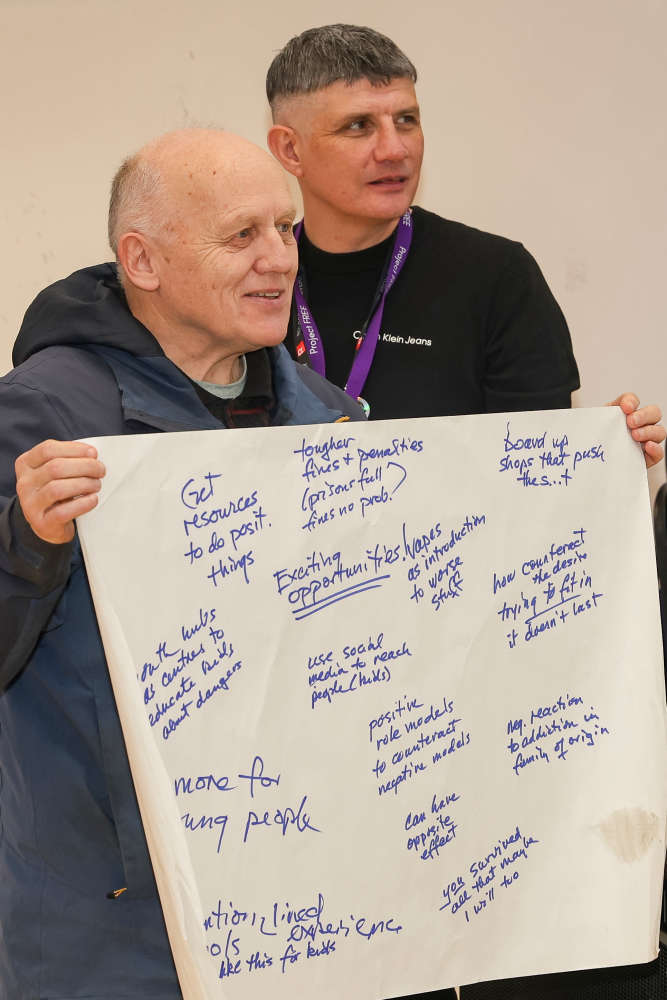 Project FREE
Project FREE
Klein Jeans
Get
resources
to do posit.
things
tougher
fines & penalties
(prisons full
fines no prob.)
board up
shops that push
the s...t
Exciting
opportunities!
Vapes
as introduction
to worse
stuff
how counteract
the desire
trying to fit in
it doesn't last
hubs
as centres to
educate kids
about dangers
use social
media to reach
people (kids)
positive
role models
to counteract
negative models
neg. reaction
to addiction in
family of origin
more for
people
can have
opposite
effect
you survived
all that maybe
I will too
lived
experience
like this for kids